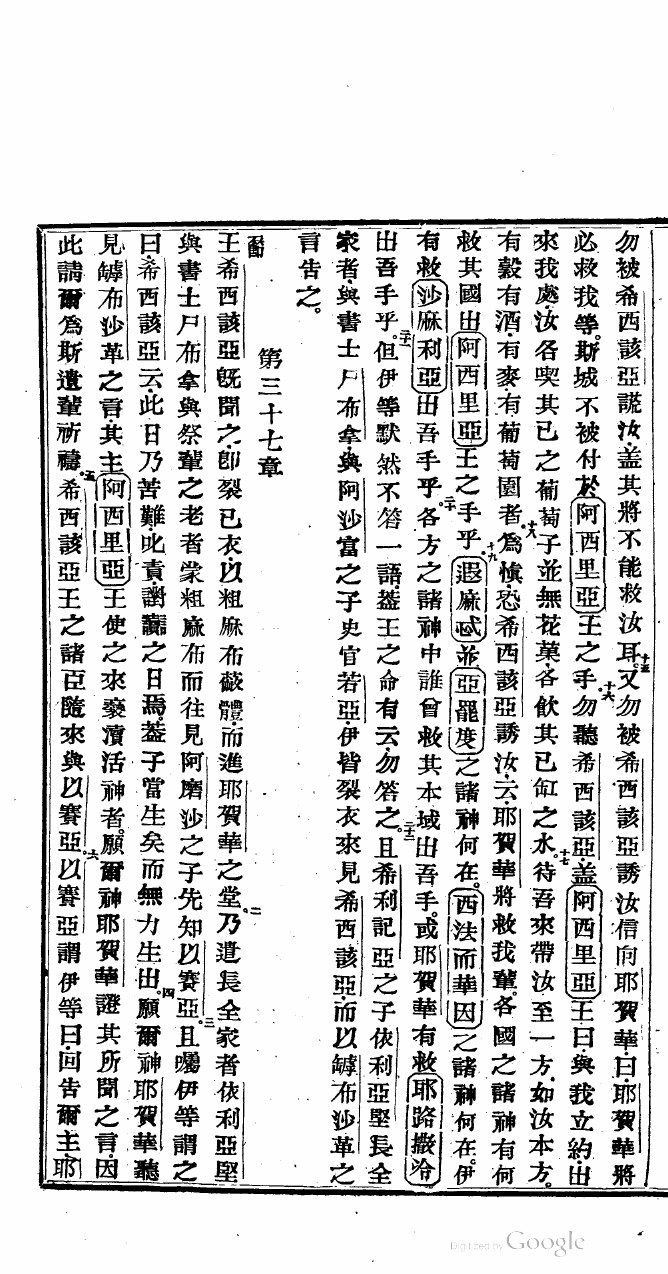 勿被希西該亞謊汝盖其將不能救汝耳十五又勿被希西該亞誘汝信向耶賀華曰耶賀華將
必救我等斯城不被付於阿西里亞王之手十六勿聽希西該亞盖阿西里亞王曰與我立約出
來我處汝各喫其已之葡萄子並無花菓各飲其已缸之水十七待吾來帶汝至一方如汝本方
有穀有酒有麥有葡萄園者十八爲愼恐希西該亞誘汝云耶賀華將救我輩各國之諸神有何
救其國出阿西里亞王之手乎十九遐麻㳦並亞罷度之諸神何在西法而華因之諸神何在伊
有救沙麻利亞出吾手乎二十各方之諸神中誰曾救其本域出吾手或耶賀華有救耶路撒冷
出吾手乎二十一但伊等默然不答一語葢王之命有云勿答之二十二且希利記亞之子依利亞堅長全
家者與書士尸布拿與阿沙富之子史官若亞伊皆裂衣來見希西該亞而以罅布沙革之
言告之
第三十七章
王希西該亞旣聞之卽裂已衣以粗麻布蔽體而進耶賀華之堂二乃遣長全家者依利亞堅
與書士尸布拿與祭輩之老者蒙粗麻布而往見阿磨沙之子先知以賽亞三且囑伊等謂之
曰希西該亞云此日乃苦難叱責謭讟之日焉葢子當生矣而無力生出四願爾神耶賀華聽
見罅布沙革之言其主阿西里亞王使之來褻瀆活神者願爾神耶賀華證其所聞之言因
此請爾爲斯遺輩祈禱五希西該亞王之諸臣隨來與以賽亞六以賽亞謂伊等曰回告爾主耶
Digitized by Google